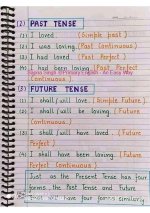 (2) PAST TENSE
(1) I loved. (Simple past)
(2) I was loving. (Past Continuous)
(3) I had loved. (Past Perfect)
(4) I had been loving. (Past Perfect Continuous.)
(3) FUTURE TENSE
(1) I shall/will love. (Simple Future).
(2) I shall/will be loving. (Future Continuous).
(3) I shall/will have loved. (Future Perfect)
(4) I shall have been loving. (Future Perfect Continuous.)
Just as the Present Tense has four
forms, the Past Tense and Future
Tense will have four forms similarly